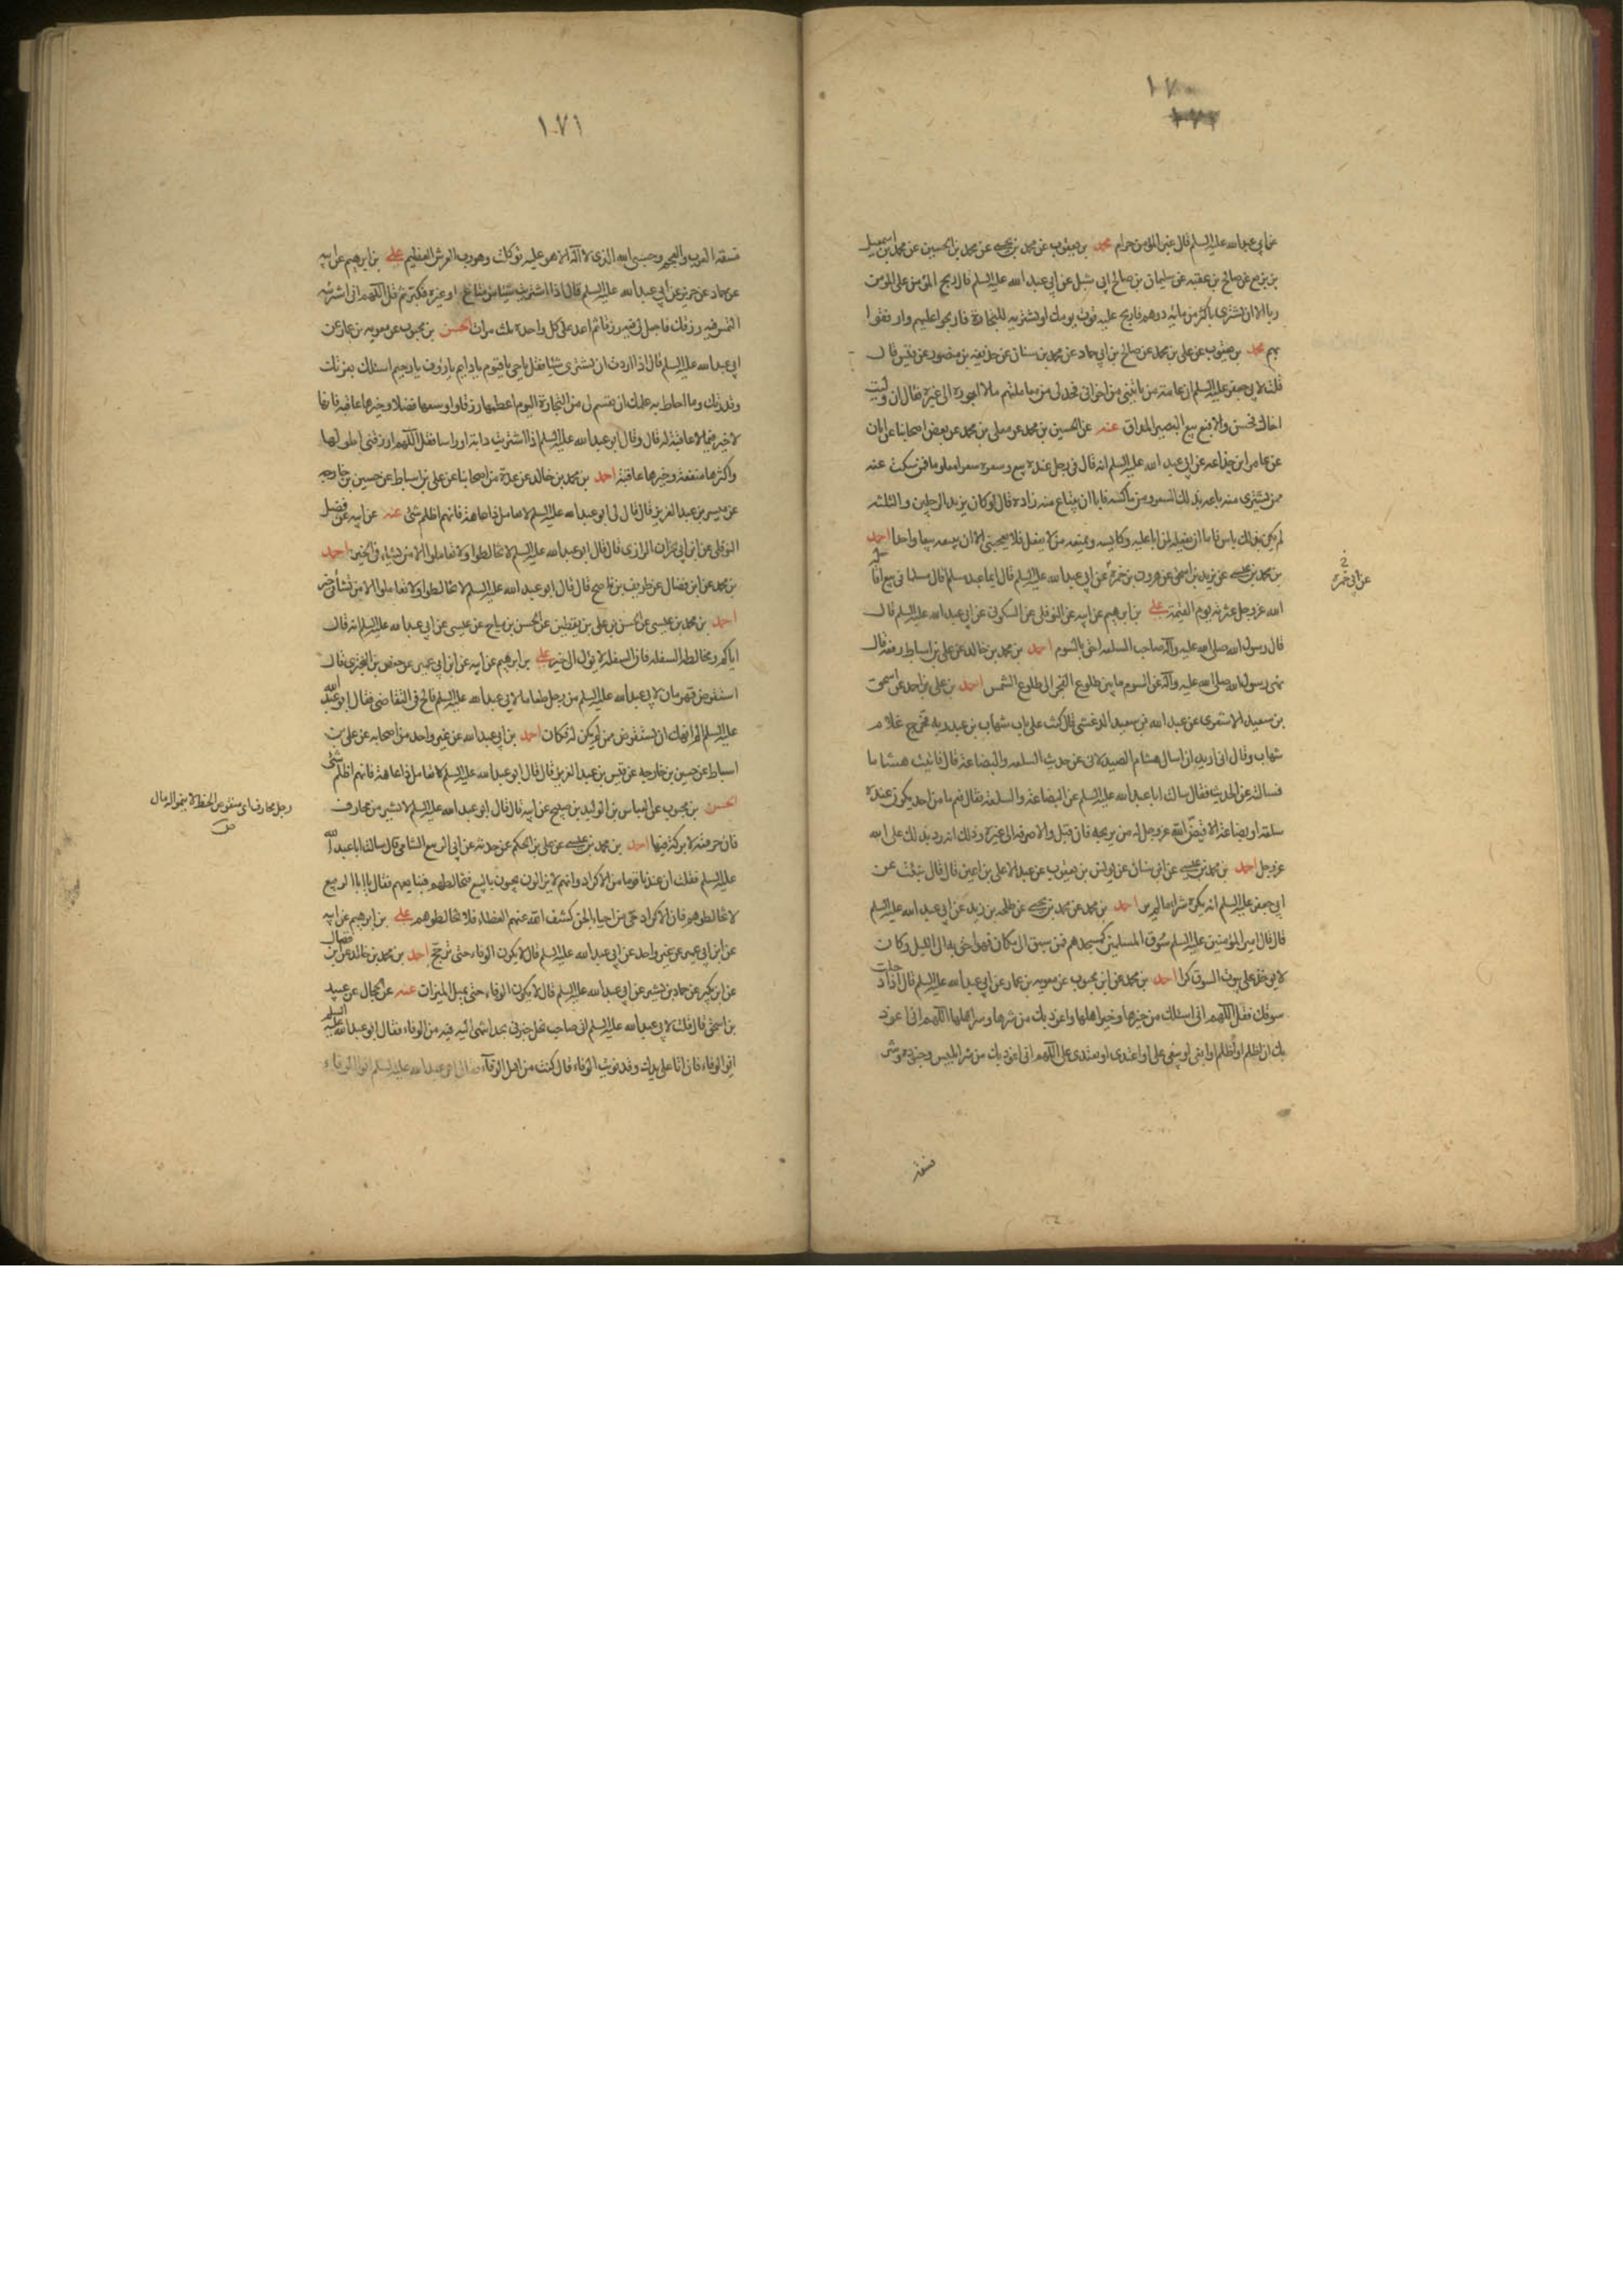 ١٧٠
١٧٢
عن ابي عبدالله عليه السلم قال غبن المؤمن حرام محمد بن يعقوب عن محمد بن يحيى عن محمد بن الحسين عن محمد بن اسمعيل
بن بزيع عن صالح بن عقبه عن سليمان بن صالح ابي شبل عن ابي عبد الله عليه السلم قال ربح المؤمن على المؤمن
ربا الا ان يشتري باكثر من مايه درهم فاربح عليه قوت يومك او يشتريه للتجارة فاربحوا عليهم وارفقوا
بهم محمد بن يعقوب عن علي بن محمد عن صالح بن ابي حماد عن محمد بن سنان عن حذيفه بن منصور عن قيس قال
قلت لابي جعفر عليه السلم ان عامة من ياتيني من اخواني فحد لي من معاملتهم ما لا اجوزه الى غيره فقال ان وليت
اخاك فحسن والا فبع بيع البصير المداق عنه عن الحسين بن محمد عن معلى بن محمد عن بعض اصحابنا عن ابان
عن عامر ابن جذاعه عن ابي عبد الله عليه السلم انه قال في رجل عنده بيع وسعره سعرا معلوما فمن سكت عنه
ممن يشتري منه باعه بذلك السعر ومن ماكسه فابا ان يبتاع منه زاده قال لو كان يزيد الرجلين والثلثه
لم يكن بذلك باس فاما ان يفعله لمن ابا عليه وكايسه ويمنعه من لا يفعل فلا يعجبني الا ان يبيعه بيعا واحدا احمد
بن محمد بن عيسى عن يزيد بن اسحق عن هرون بن حمزة عن ابي عبد الله عليه السلم قال ايما عبد مسلم اقال مسلما في بيع اقا
له
الله عزوجل عثرته يوم القيمة علي بن ابرهيم عن ابيه عن النوفلي عن السكوني عن ابي عبدالله عليه السلم قال
قال رسول الله صلى الله عليه وآله صاحب السلعه احق بالسوم احمد بن محمد بن خالد عن علي بن اسباط رفعه قال
نهى رسول الله صلى الله عليه وآله عن السوم ما بين طلوع الفجر الى طلوع الشمس احمد بن علي بن احمد عن اسحق
بن سعيد الاشعري عن عبد الله بن سعيد الدغشي قال كنت على باب شهاب بن عبد ربه فخرج غلام
شهاب وقال اني اريد ان اسال هشام الصيدلاني عن حديث السلعه والبضاعه قال فاتيت هشاما
فسالته عن الحديث فقال سالت ابا عبدالله عليه السلم عن البضاعه والسلعة فقال نعم ما من احد يكون عنده
سلعة او بضاعة الا قيض الله عزوجل له من يربحه فان قبل والا صرفه الى غيره وذلك انه رد بذلك على الله
عزوجل احمد بن محمد بن عيسى عن ابن سنان عن يونس بن يعقوب عن عبد الاعلى بن اعين قال قال نبئت عن
ابي جعفر عليه السلم انه يكره شراء ما لم يره احمد بن محمد عن محمد بن يحيى عن طلحه بن زيد عن ابي عبد الله عليه السلم
قال قال امير المؤمنين عليه السلم سوق المسلمين كمسجدهم فمن سبق الى مكان فهو احق به الى الليل وكان
لا ياخذ على بيوت السوق كرا احمد بن محمد عن ابن محبوب عن معويه بن عمار عن ابي عبدالله عليه السلم قال اذا دخلت
سوقك فقل اللهم اني اسئلك من خيرها وخير اهلها واعوذ بك من شرها وشر اهلها اللهم اني اعوذ
بك ان اظلم او اظلم او ابغي او يبغى علي او اعتدي او يعتدى علي اللهم اني اعوذ بك من شر ابليس وجنوده وشر
فسقة
عن ابي حمزة
١٧١
فسقة العرب والعجم وحسبي الله الذي لا اله الا هو عليه توكلت وهو رب العرش العظيم علي بن ابرهيم عن ابيه
عن حماد عن حريز عن ابي عبدالله عليه السلم قال اذا اشتريت شيئا من متاع او غيره فكبر ثم قل اللهم اني اشتريته
التمس فيه رزقك فاجعل لي فيه رزقا ثم اعد على كل واحدة ثلث مرات الحسن بن محبوب عن معويه بن عمار عن
ابي عبدالله عليه السلم قال اذا اردت ان تشتري شيئا فقل يا حي يا قيوم يا دايم يا رؤف يا رحيم اسئلك بعزتك
وقدرتك وما احاط به علمك ان تقسم لي من التجارة اليوم اعظمها رزقا واوسعها فضلا وخيرها عاقبة فانه
لا خير فيما لا عاقبة له قال وقال ابو عبدالله عليه السلم اذا اشتريت دابة او راسا فقل اللهم ارزقني اطولها
واكثرها منفعة وخيرها عاقبة احمد بن محمد بن خالد عن عدة من اصحابنا عن علي بن اسباط عن حسين بن خارجه
عن ميسر بن عبد العزيز قال قال لي ابو عبدالله عليه السلم لا تعامل ذا عاهة فانهم اظلم شئ عنه عن ابيه عن فضل
النوفلي عن ابن ابي نجران الرازي قال قال ابو عبدالله عليه السلم لا تخالطوا ولا تعاملوا الا من نشاء في الخير احمد
بن محمد عن ابن فضال عن ظريف بن ناصح قال قال ابو عبد الله عليه السلم لا تخالطوا ولا تعاملوا الا من نشأ في خير
احمد بن محمد بن عيسى عن الحسن بن علي بن يقطين عن الحسن بن مياح عن عيسى عن ابي عبدالله عليه السلم انه قال
اياكم ومخالطه السفله فان السفله لا يؤل الى خير علي بن ابرهيم عن ابيه عن ابن ابي عمير عن حفص بن البختري قال
استقرض قهرمان لابي عبدالله عليه السلم من رجل طعاما لابي عبدالله عليه السلم فالح في التقاضي فقال ابو عبد الله
عليه السلم الم انهك ان تستقرض من لم يكن له فكان احمد بن ابي عبدالله عن غير واحد من اصحابه عن علي بن
اسباط عن حسين بن خارجه عن ميسر بن عبد العزيز قال قال ابو عبدالله عليه السلم لا تعامل ذا عاهة فانهم اظلم شئ
الحسن بن محبوب عن العباس بن الوليد بن صبيح عن ابيه قال قال ابو عبدالله عليه السلم لا تشتر من محارف
فان حرفته لا بركة فيها احمد بن محمد بن عيسى عن علي بن الحكم عن حدثه عن ابي الربيع الشامي قال سالت ابا عبد الله
عليه السلم فقلت ان عندنا قوما من الاكراد وانهم لا يزالون يجيؤن بالبيع فنخالطهم فنبايعهم فقال يا ابا الربيع
لا تخالطوهم فان الاكراد حي من احياء الجن كشف الله عنهم الغطاء فلا تخالطوهم علي بن ابرهيم عن ابيه
عن ابن ابي عمير عن غير واحد عن ابي عبدالله عليه السلم قال لا يكون الوفاء حتى ترجح احمد بن محمد بن خالد عن ابن فضال
عن ابن بكير عن حماد بن بشير عن ابي عبدالله عليه السلم قال لا يكون الوفاء حتى يميل الميزان عنه عن الحجال عن عبيد
بن اسحق قال قلت لابي عبدالله عليه السلم اني صاحب نخل خبرني بحد انتهي اليه فيه من الوفاء فقال ابو عبدالله عليه السلم
انو الوفاء فان اتا على يدك وقد نويت الوفاء قال كنت من اهل الوفآء فقال ابو عبدالله عليه السلم انو الوفاء
رجل محارف اي منقوص الحظ لا ينمو له مال
ص